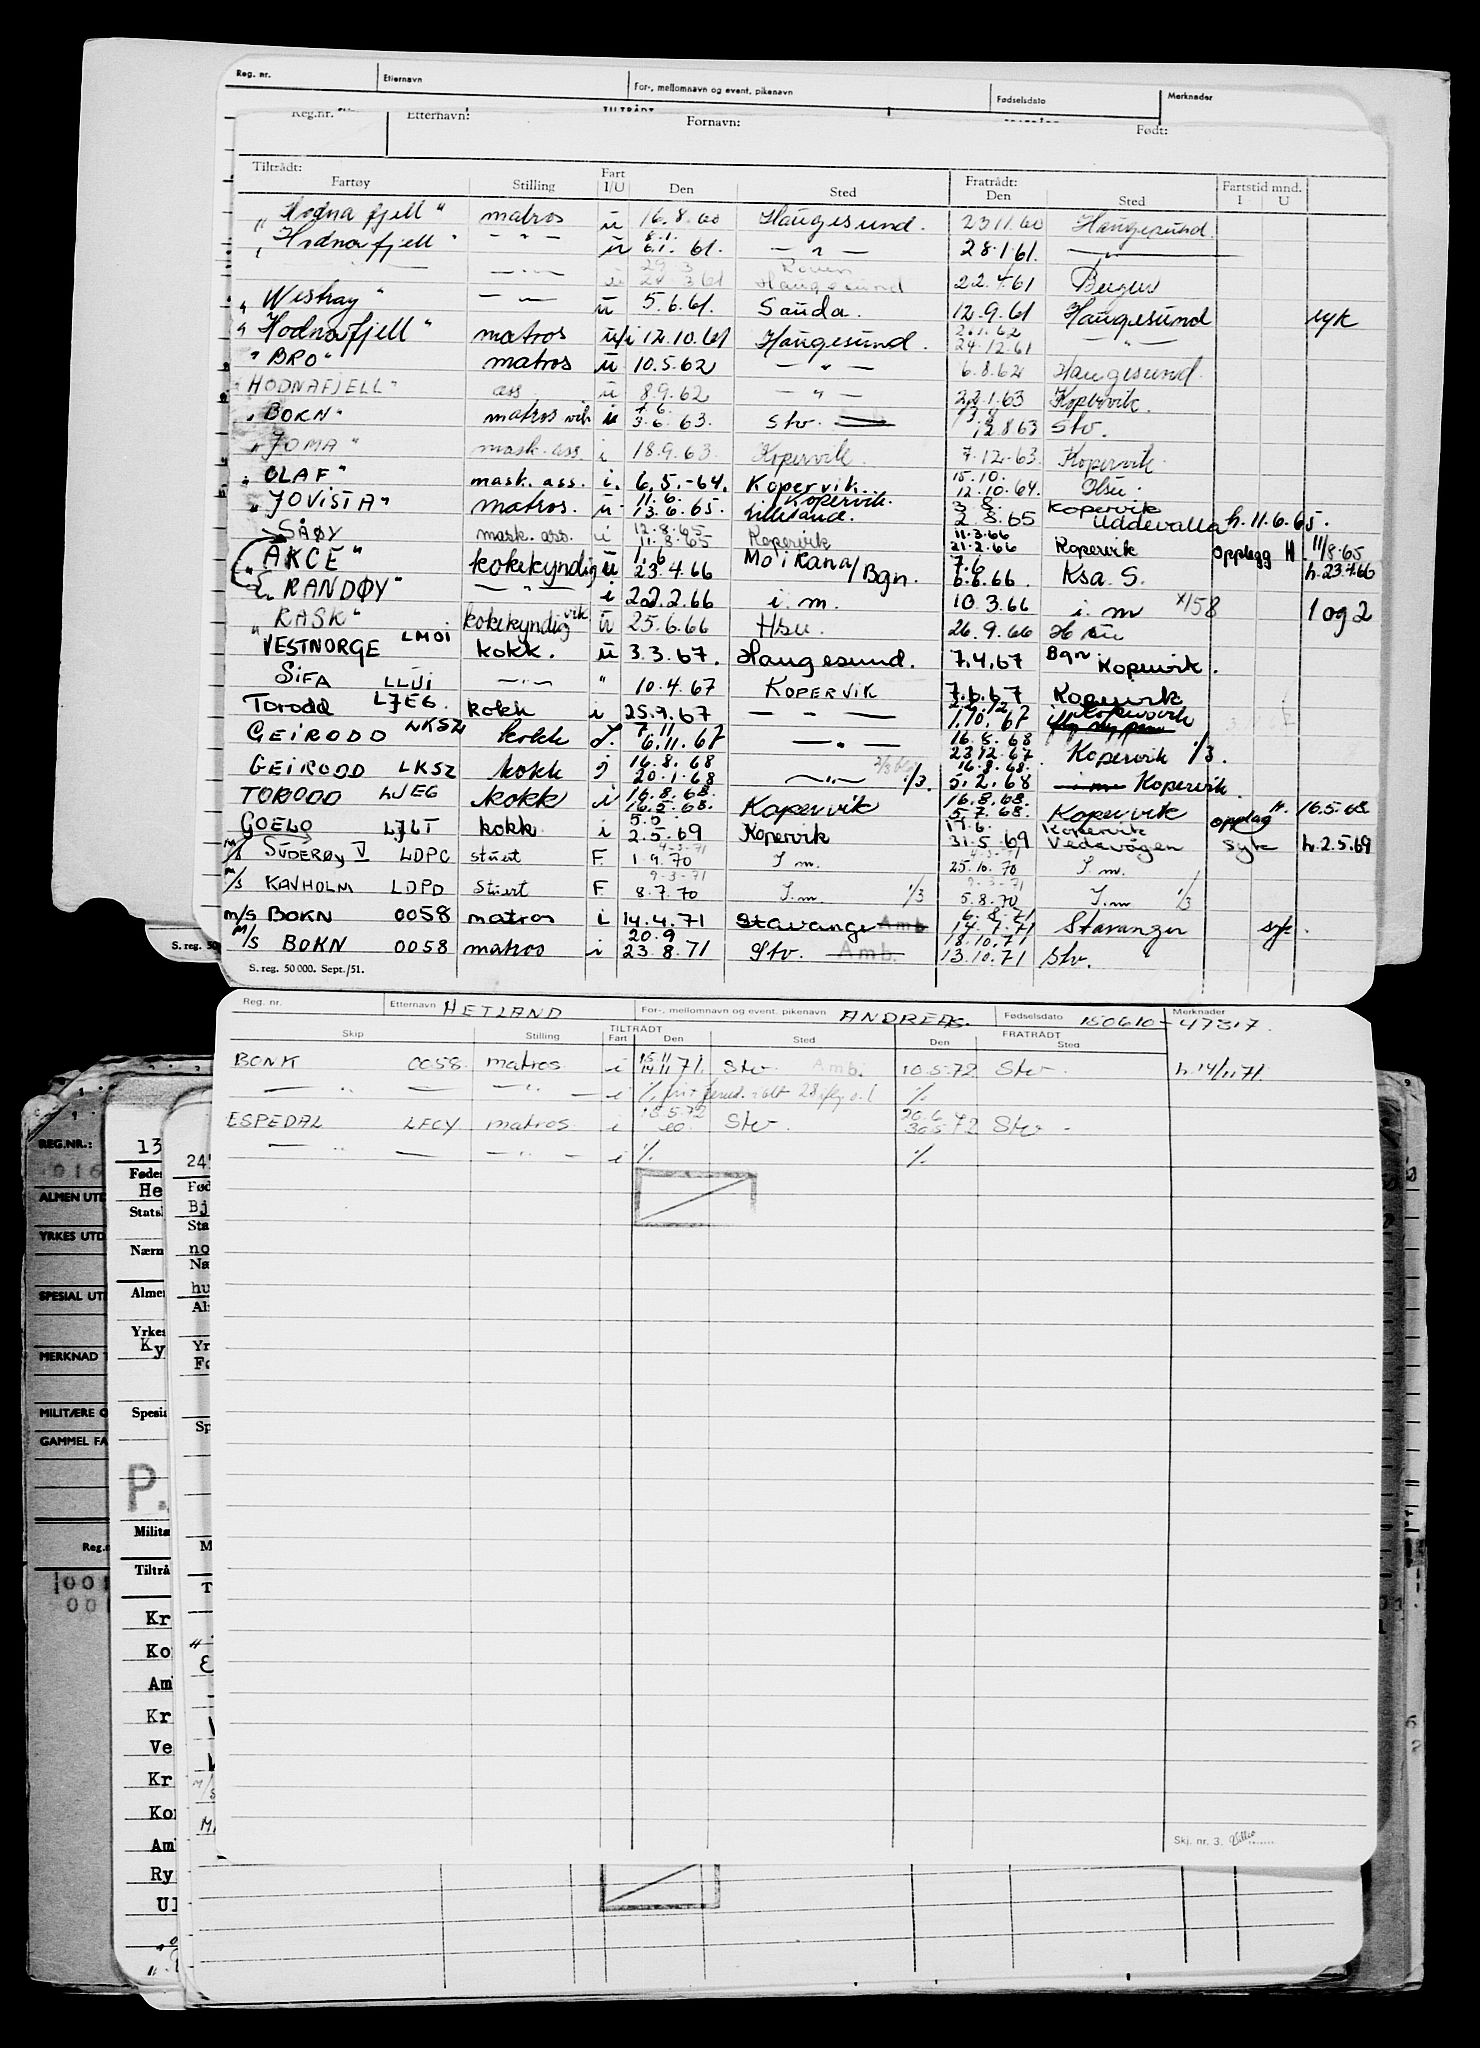 Reg. nr. Etternavn For-, mellomnavn og event. pikenavn Fødselsdato Merknader
Reg.nr. Etternavn: Fornavn: Født:
Tiltrådt: Fratrådt:
Fartøy Stilling Fart I/U Den Sted Den Sted Fartstid mnd. I U
"Hodnafjell" matros u 16.8.60 Haugesund. 23 11.60 Haugesund.
"Hodnafjell" - " - u 8.1. 6.1. 61. - " - 28.1.61. - " -
- " - u 24.3.61 Haugesund 22.4.61 Bergen
"Westray" - " - u 5.6.61. Sauda. 12.9.61 Haugesund syk
"Hodnafjell" matros u/i 12.10.61 Haugesund. 2.1.62 24.12.61 - " -
"BRO" matros u 10.5.62 - " - 6.8.62 Haugesund.
"HODNAFJELL" ass u 8.9.62 - " - 22.1.63 Kopervik.
"BOKN" matros vik u 4.6. 3.6.63. Stv. 12.8.63 Stv.
"JOMA" mask. ass i 18.9.63. Kopervik. 7.12.63. Kopervik.
"OLAF" mask. ass. i. 6.5.-64. Kopervik. 15.10. 12.10.64. Olsu.
"JOVISTA" matros. u 11.6. 13.6.65. Kopervik. Lillesand. 3.8. 2.8.65 Kopervik Uddevalla h. 11.6.65.
SÅØY mask. ass. i 12.8.65 11.8.65 Kopervik 11.3.66 21.2.66 Kopervik opplegg H 11/8.65
"AKCE" kokkyndig u 1.6 23.4.66 Mo i Rana/Bgn. 7.6 6.6.66. Ksa. S. h. 23.4.66
"RANDØY" - " - i 22.2.66 i. m. 10.3.66 i. m x/58 1 og 2
"RASK" kokkyndig vik u 25.6.66 Hsu. 26.9.66 Hsu
"VESTNORGE LMOI kokk. u 3.3.67. Haugesund. 7.4.67 Bgn Kopervik.
SIFA LLUI - " - " 10.4.67 KOPERVIK 7.6.67 Kopervik
Torodd LJEG. kokk i 25.9.67 - " - 1.10.67 Kopervik
GEIRODD LKSZ kokk I. 7.11 6.11.67 - " - 16.8.68 23.12.67 Kopervik 1/3.
GEIRODD LKSZ kokk i 16.8.68 20.1.68 - " - 1/3. 16.8.68. 5.2.68 Kopervik.
TORODD LJEG kokk i 16.8.68. 16.5.68. Kopervik 16.8.68. 5.7.68. Kopervik opplag H. 16.5.68.
GOELO LJLT kokk. i 5.5. 2.5.69 Kopervik 19.6. 31.5.69 Kopervik Vedavågen Syk h. 2.5.69
M/S SUDERØY V LDPC stuert F. 4-3-71 1.9.70 I m. 4-3-71 25.10.70 I. m.
M/S KAVHOLM LDPD Stuert F. 9-3-71 8.7.70 I.m 1/3 9-3-71 5.8.70 I.m 1/3
m/s BOKN 0058 matros i 14.4.71 Stavanger Amb 6.8.71 14.7.71 Stavanger syk.
M/S BOKN 0058 matros i 20.9 23.8.71 Stv. Amb. 18.10.71 13.10.71 Stv.
S. reg. 50 S. reg. 50 000. Sept./51.
Reg. nr. Etternavn HETLAND For-, mellomnavn og event. pikenavn ANDREAS. Fødselsdato 150610-47317. Merknader
TILTRÅDT FRATRÅDT
Skip Stilling Fart Den Sted Den Sted
BONK 0058. matros. i 15.11 14.11 71. Stv. Amb. 10.5.72 Stv. h. 14/11 71.
- " - - " - i %
ESPEDAL LFCY matros. i 18.5.72 Stv. 20.6 30.5 72 Stv -
- " - - " - i % %
REG.NR.: 13 245
0916
Føde
He Fød
ALMEN UTD Bj
Stats Sta
YRKES UTD no
Nærm Næ
SPESIAL UT Alme hu
Al
Yrkes Yr
Ky Fø
MERKNAD T
MILITÆRE O Spesia Sp
GAMMEL FA
P.
Milita M
Reg.n
Tiltrå T
001
001
Kr
Ko
Am
Kr
Ve
Kr
Kor
Aml
Ry
Ul
Skj. nr. 3.